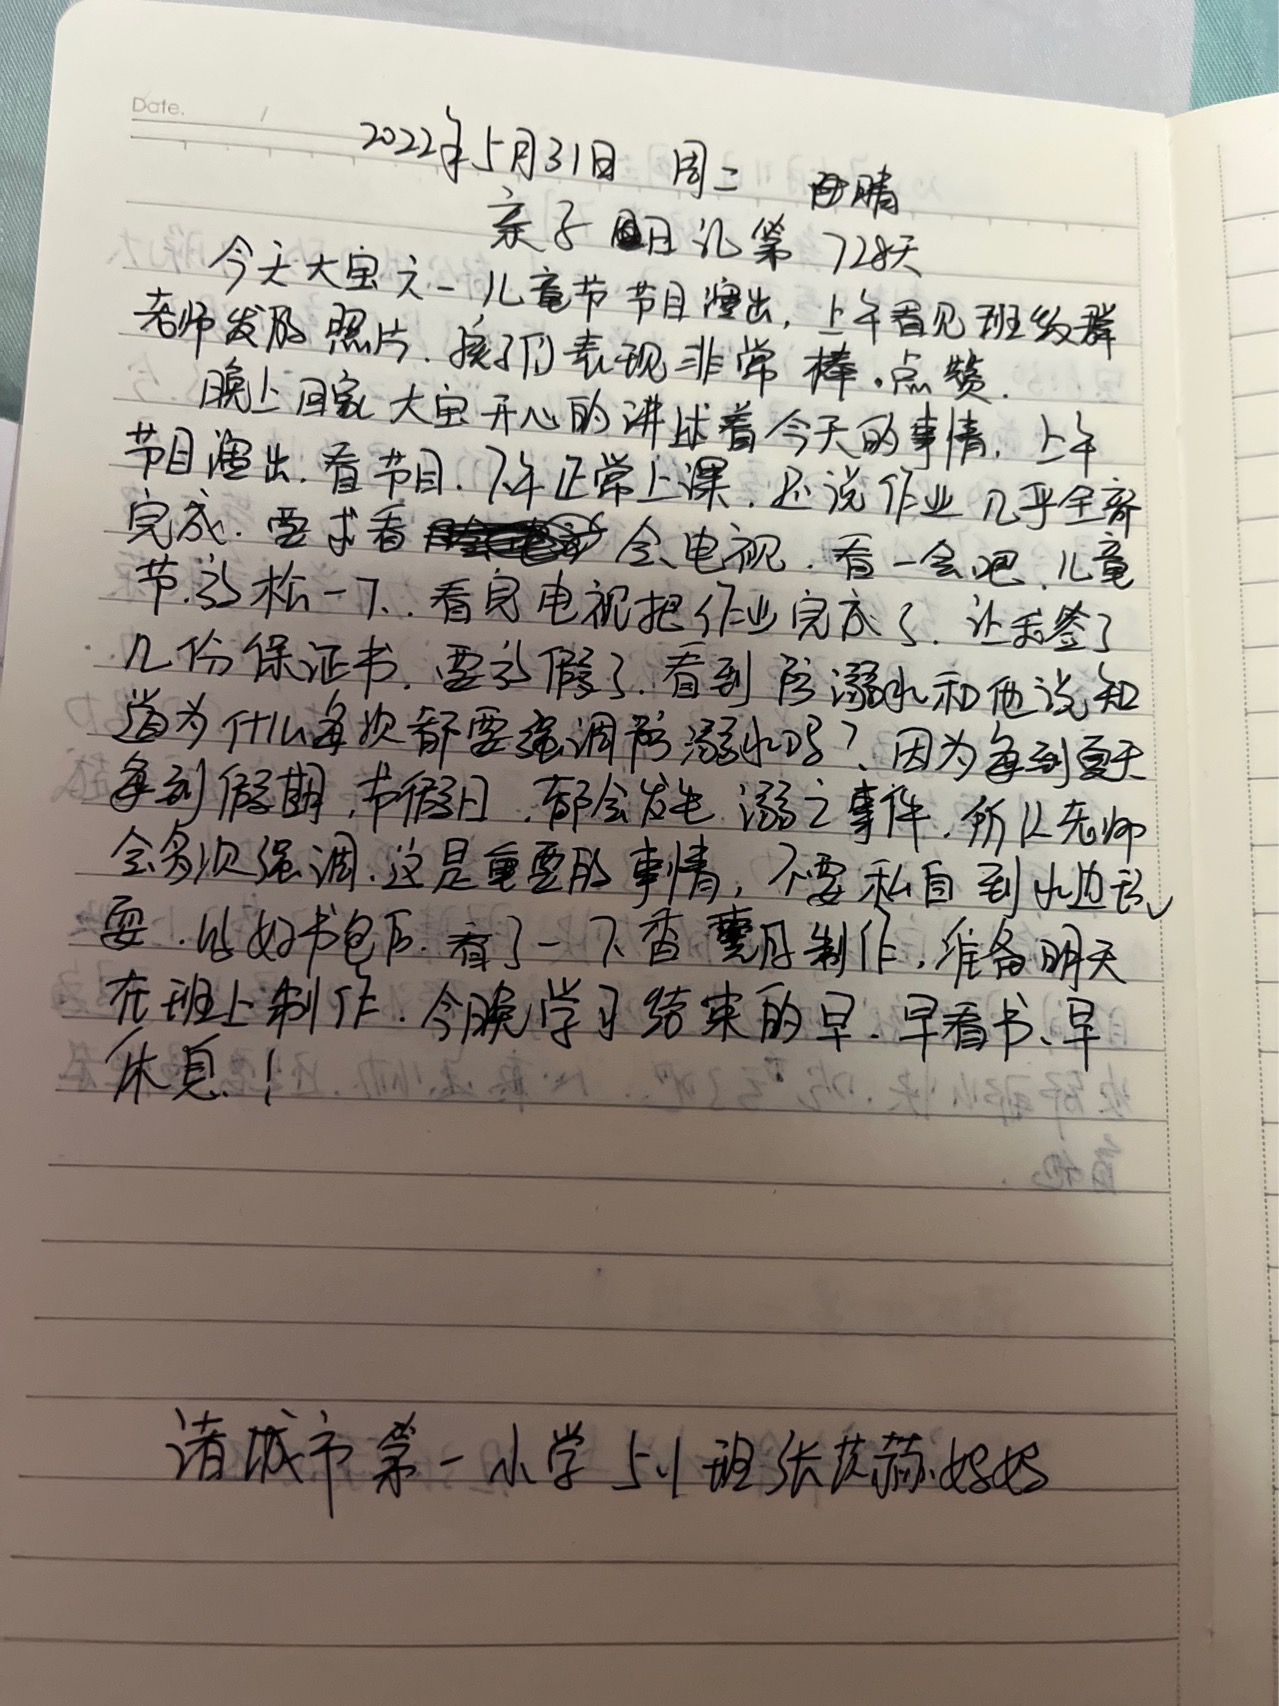 Date.
2022年5月31日 周二 晴
亲子日记第728天
今天大宝六一儿童节节目演出,上午看见班级群
老师发的照片.孩子们表现非常棒.点赞.
晚上回家大宝开心的讲述着今天的事情.上午
节目演出.看节目.下午正常上课.还说作业几乎全部
完成.要求看会电视.看一会吧.儿童
节.放松一下.看完电视把作业完成了.让我签了
几份保证书.要放假了.看到防溺水和他说知
道为什么每次都要强调防溺水吗?因为每到夏天
每到假期.节假日.都会发生溺之事件.所以老师
会多次强调.这是重要的事情,不要私自到水边玩
耍.收好书包后.看了一下香囊制作,准备明天
在班上制作.今晚学习结束的早.早看书、早
休息!
诸城市第一小学5.1班张芷赫妈妈